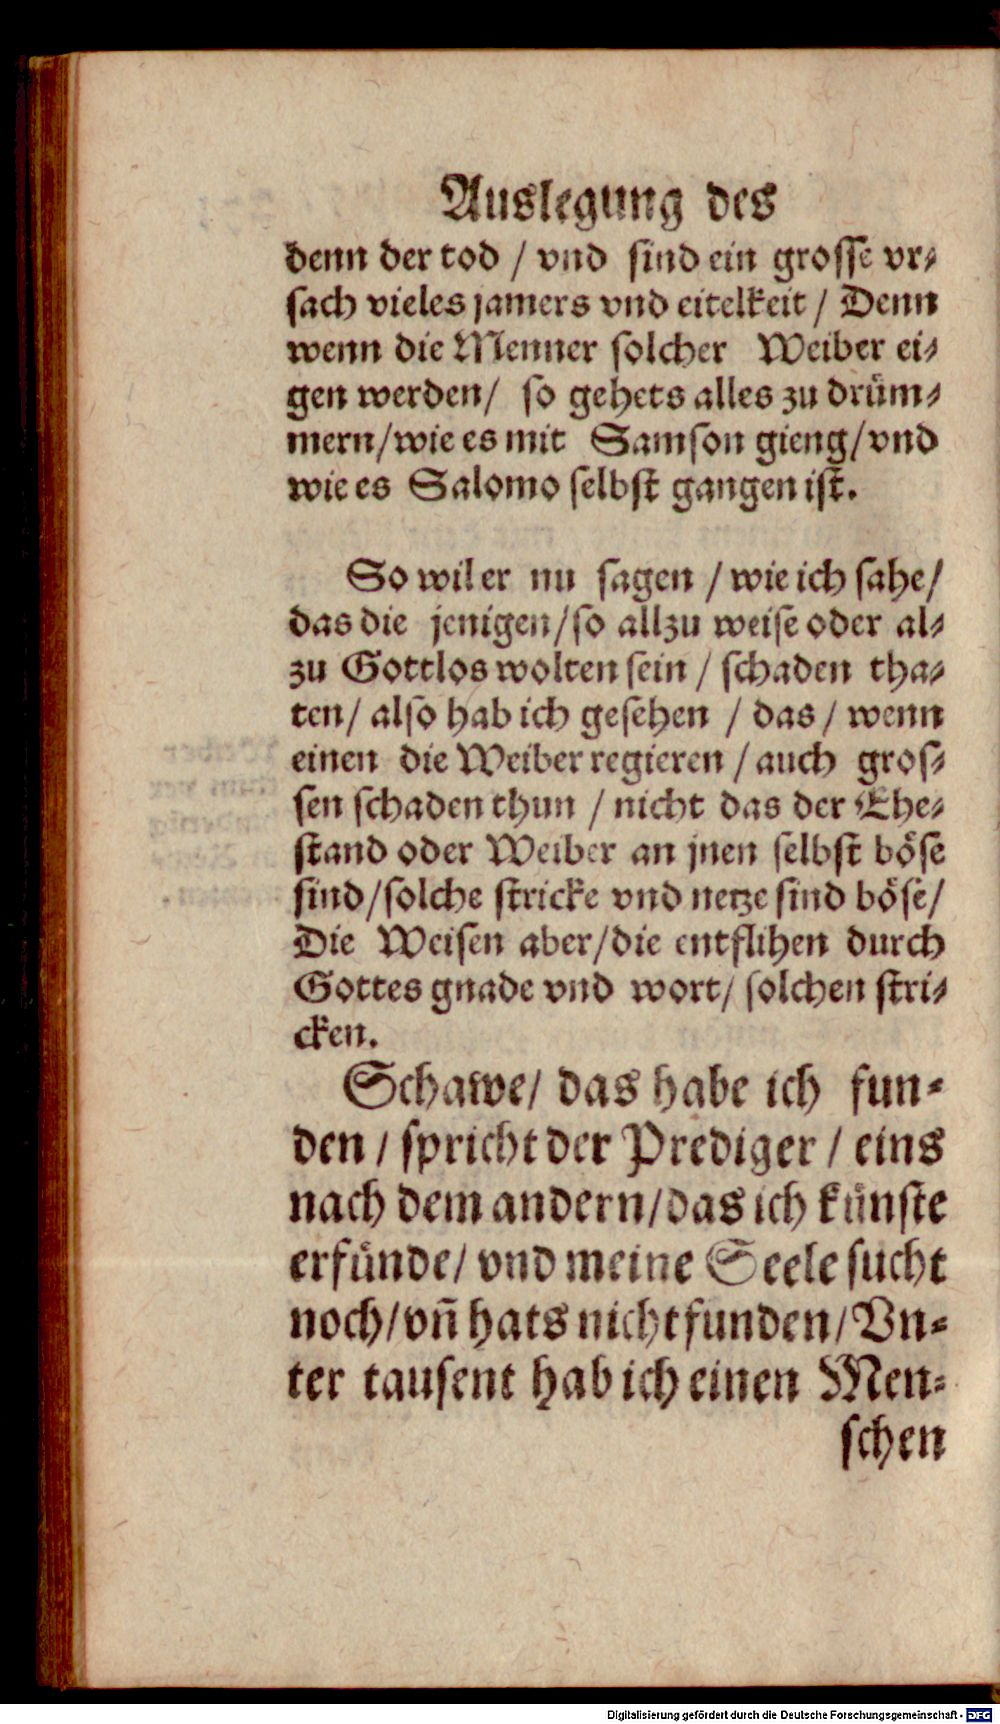 Auslegung des
denn der tod / vnd sind ein grosse vr⸗
sach vieles jamers vnd eitelkeit / Denn
wenn die Menner solcher Weiber ei⸗
gen werden / so gehets alles zu drüm⸗
mern / wie es mit Samson gieng / vnd
wie es Salomo selbst gangen ist.
So wil er nu sagen / wie ich sahe /
das die jenigen / so allzu weise oder al⸗
zu Gottlos wolten sein / schaden tha⸗
ten / also hab ich gesehen / das / wenn
einen die Weiber regieren / auch gros⸗
sen schaden thun / nicht das der Ehe⸗
stand oder Weiber an jnen selbst böse
sind / solche stricke vnd netze sind böse /
Die Weisen aber / die entflihen durch
Gottes gnade vnd wort / solchen stri⸗
cken.
Schawe / das habe ich fun⸗
den / spricht der Prediger / eins
nach dem andern / das ich künste
erfünde / vnd meine Seele sucht
noch / vñ hats nicht funden / Vn⸗
ter tausent hab ich einen Men⸗
schen
Digitalisierung gefördert durch die Deutsche Forschungsgemeinschaft - DFG